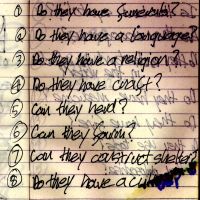 ① Do they have funerals?
② Do they have a language?
③ Do they have a religion?
④ Do they have coast?
⑤ Can they hend?
⑥ Can they fourm?
⑦ Can they construct shelter?
⑧ Do they have a